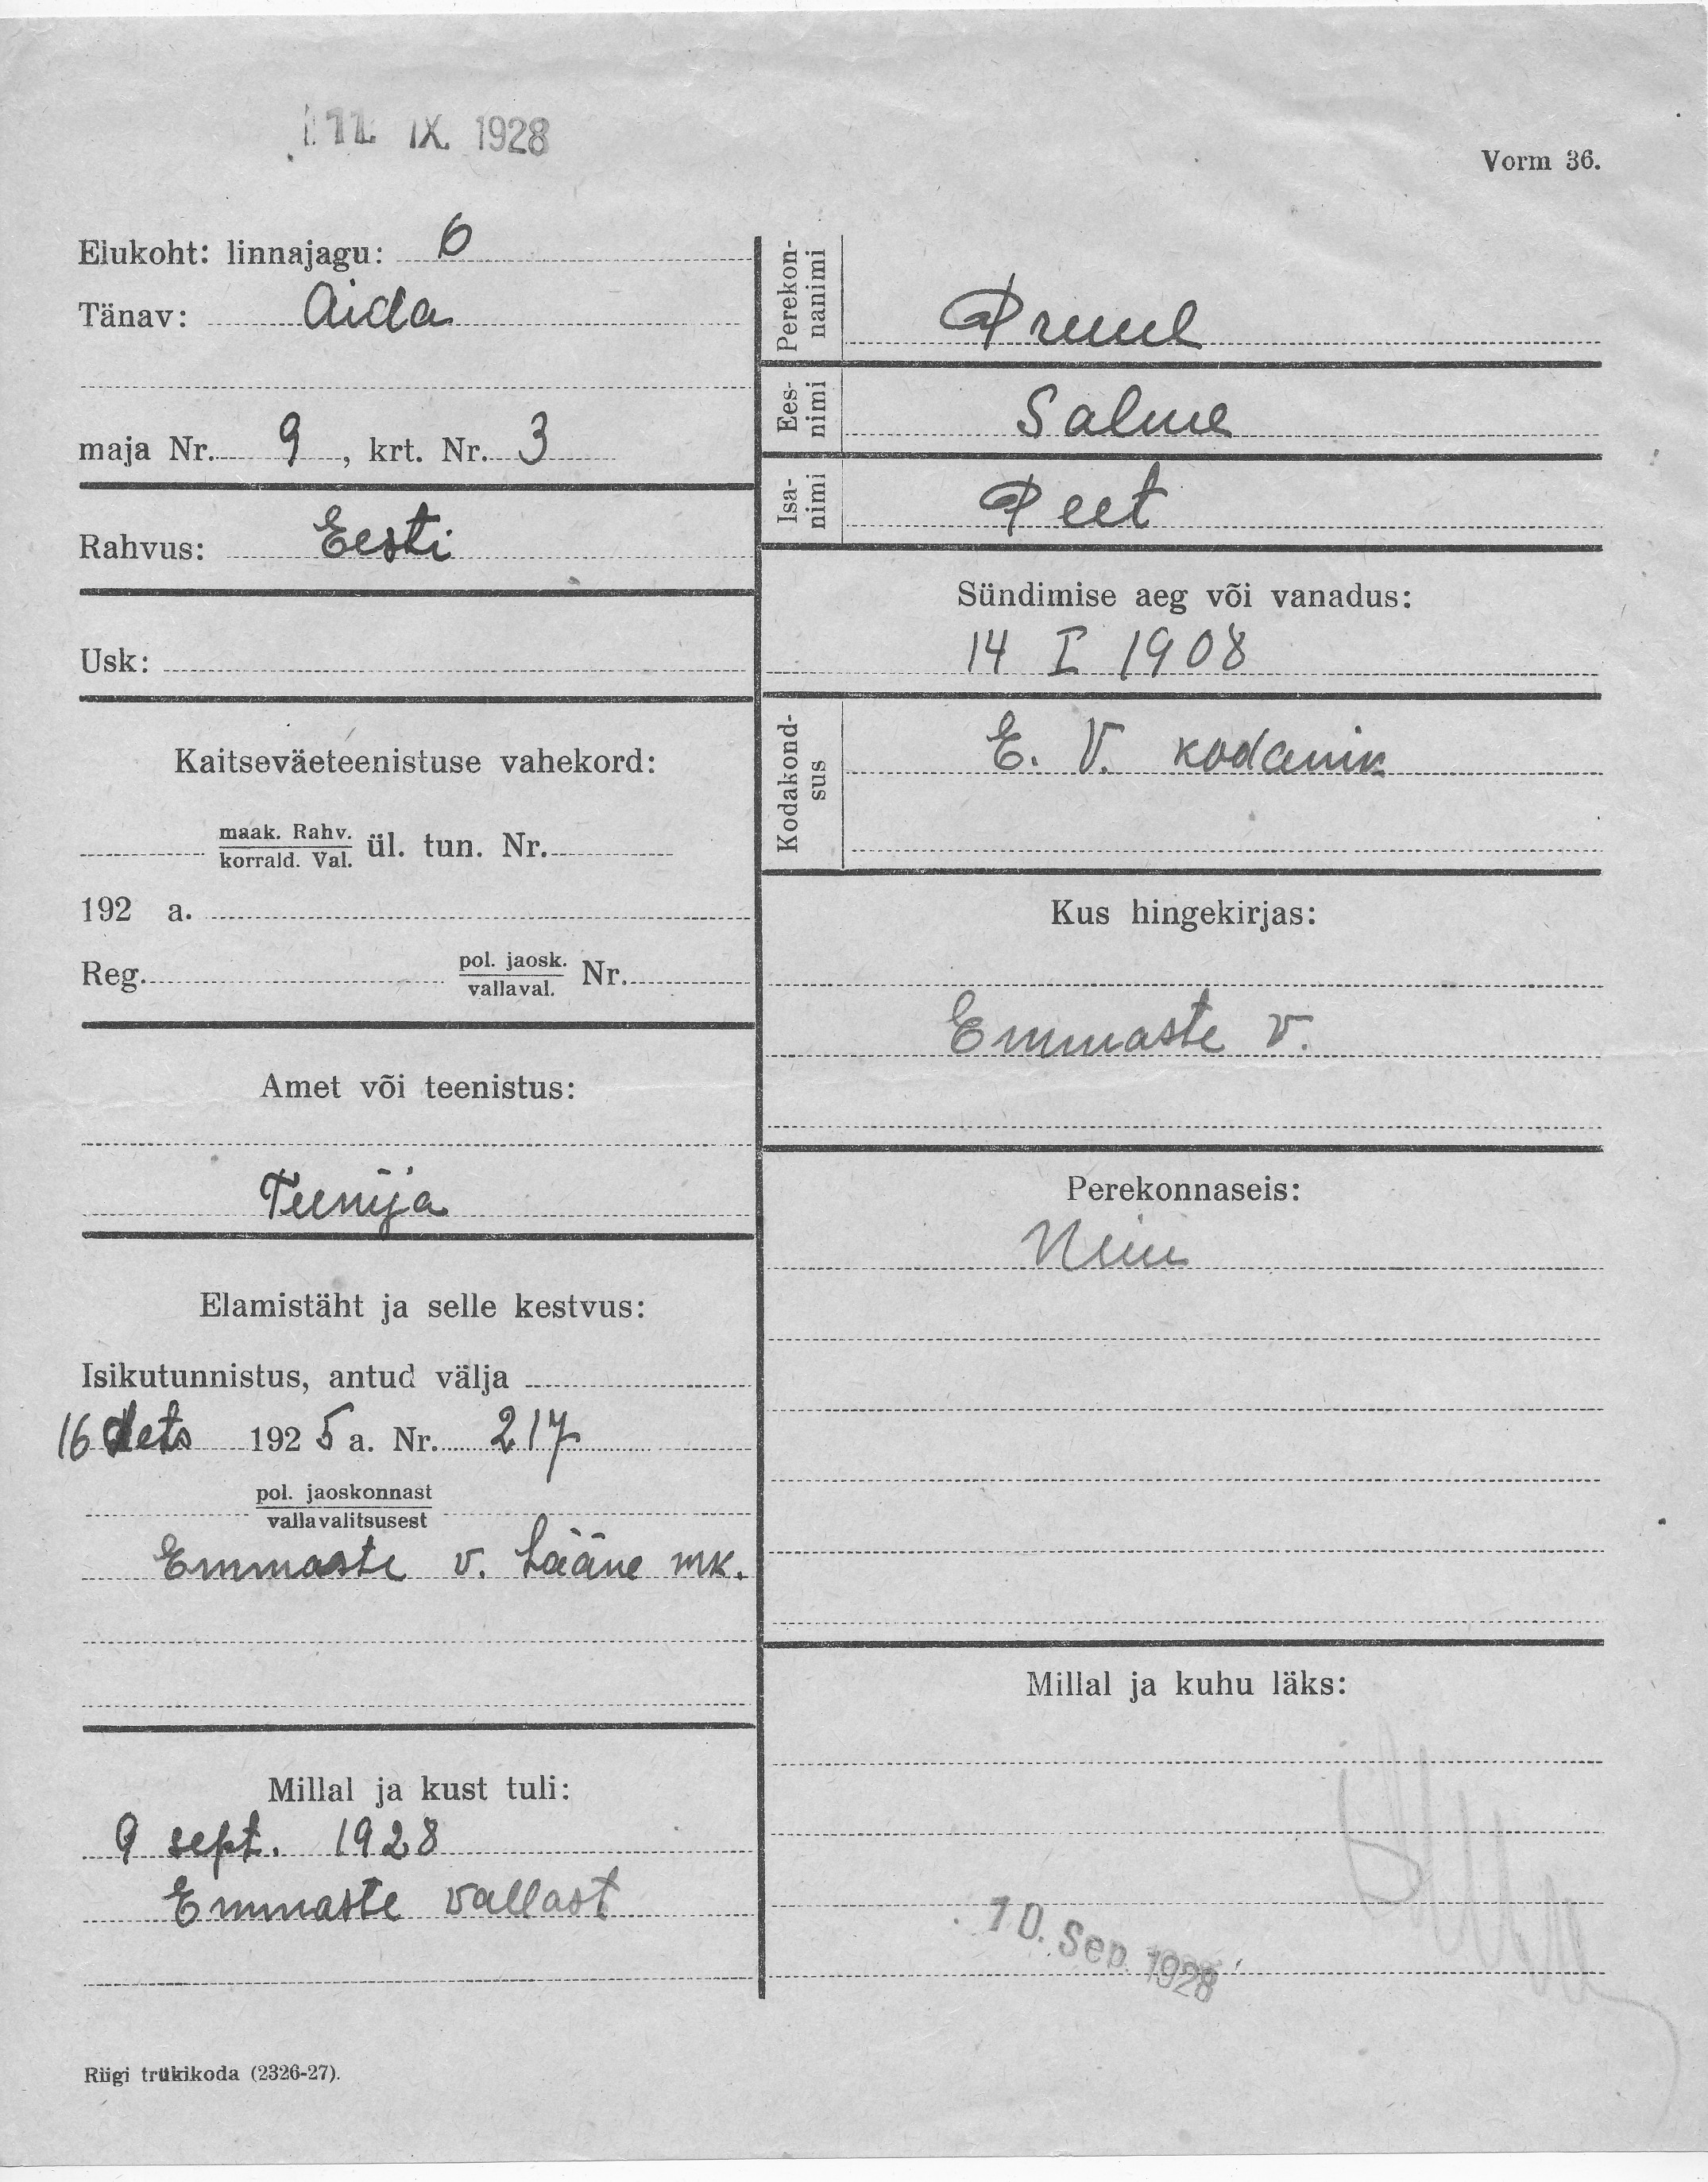 11. IX. 1928
Vorm 36.
Elukoht: linnajagu: 6
Tänav: Aida
maja Nr. 9, krt. Nr. 3
Rahvus: Eesti
Usk:
Kaitseväeteenistuse vahekord:
maak. Rahv.
korrald. Val. ül. tun. Nr.
192 a.
Reg. pol. jaosk.
vallaval. Nr.
Amet või teenistus:
Teenija
Elamistäht ja selle kestvus:
Isikutunnistus, antud välja
16 dets 1925 a. Nr. 217
pol. jaoskonnast
vallavalitsusest
Emmaste v. Lääne mk.
Millal ja kust tuli:
9 sept. 1928
Emmaste vallast
Perekon-
nanimi
Pruul
Ees-
nimi
Salme
Isa-
nimi
Peet
Sündimise aeg või vanadus:
14 I 1908
Kodakond-
sus
E. V. kodanik
Kus hingekirjas:
Emmaste v.
Perekonnaseis:
Neiu
Millal ja kuhu läks:
10. Sep. 1928
Riigi trükikoda (2326-27).